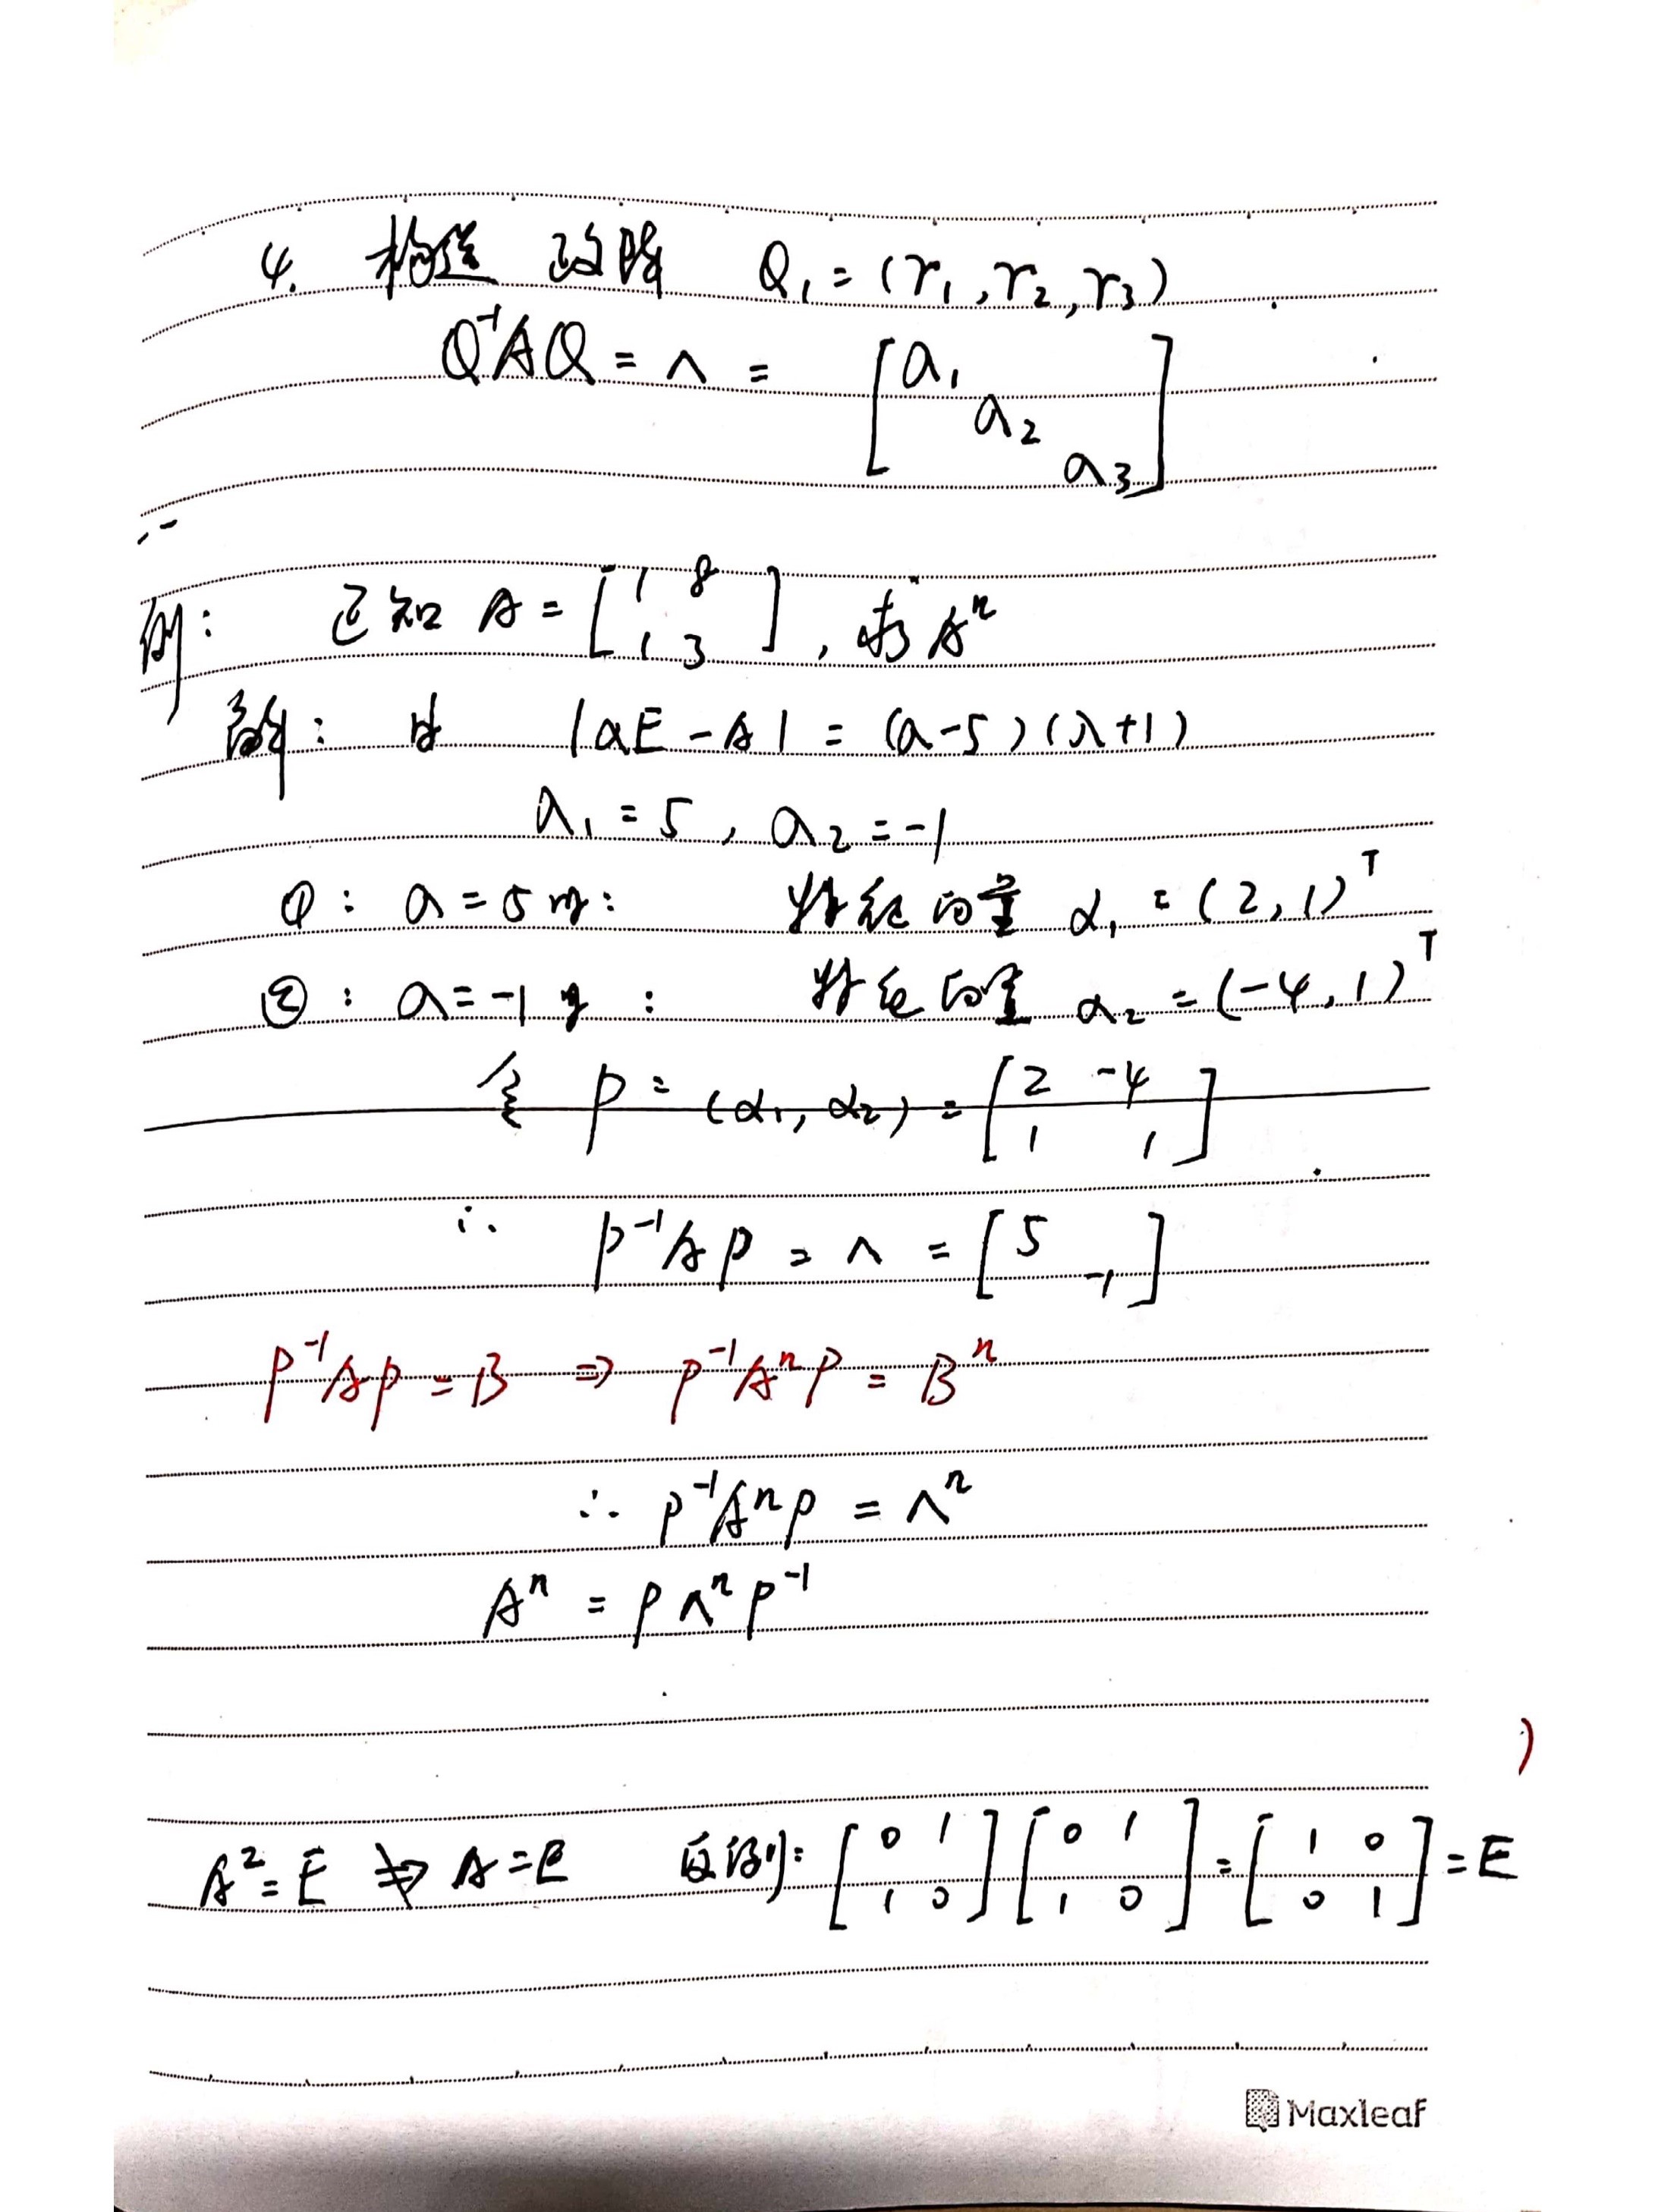 4. 构造 正交阵 Q₁ = (r₁, r₂, r₃)
Q⁻¹AQ = Λ = [a₁ a₂ a₃]
例: 已知 A = [1 8; 1 3], 求 Aⁿ
解: 由 |aE - A| = (a-5)(λ+1)
a₁ = 5, a₂ = -1
①: a = 5时: 特征向量 α₁ = (2, 1)ᵀ
②: a = -1时: 特征向量 α₂ = (-4, 1)ᵀ
令 P = (α₁, α₂) = [2 -4; 1 1]
∴ P⁻¹AP = Λ = [5 -1]
P⁻¹AP = B ⇒ P⁻¹AⁿP = Bⁿ
∴ P⁻¹AⁿP = Λⁿ
Aⁿ = PΛⁿP⁻¹
)
A² = E ⇏ A = E 反例: [0 1; 1 0][0 1; 1 0] = [1 0; 0 1] = E
Maxleaf